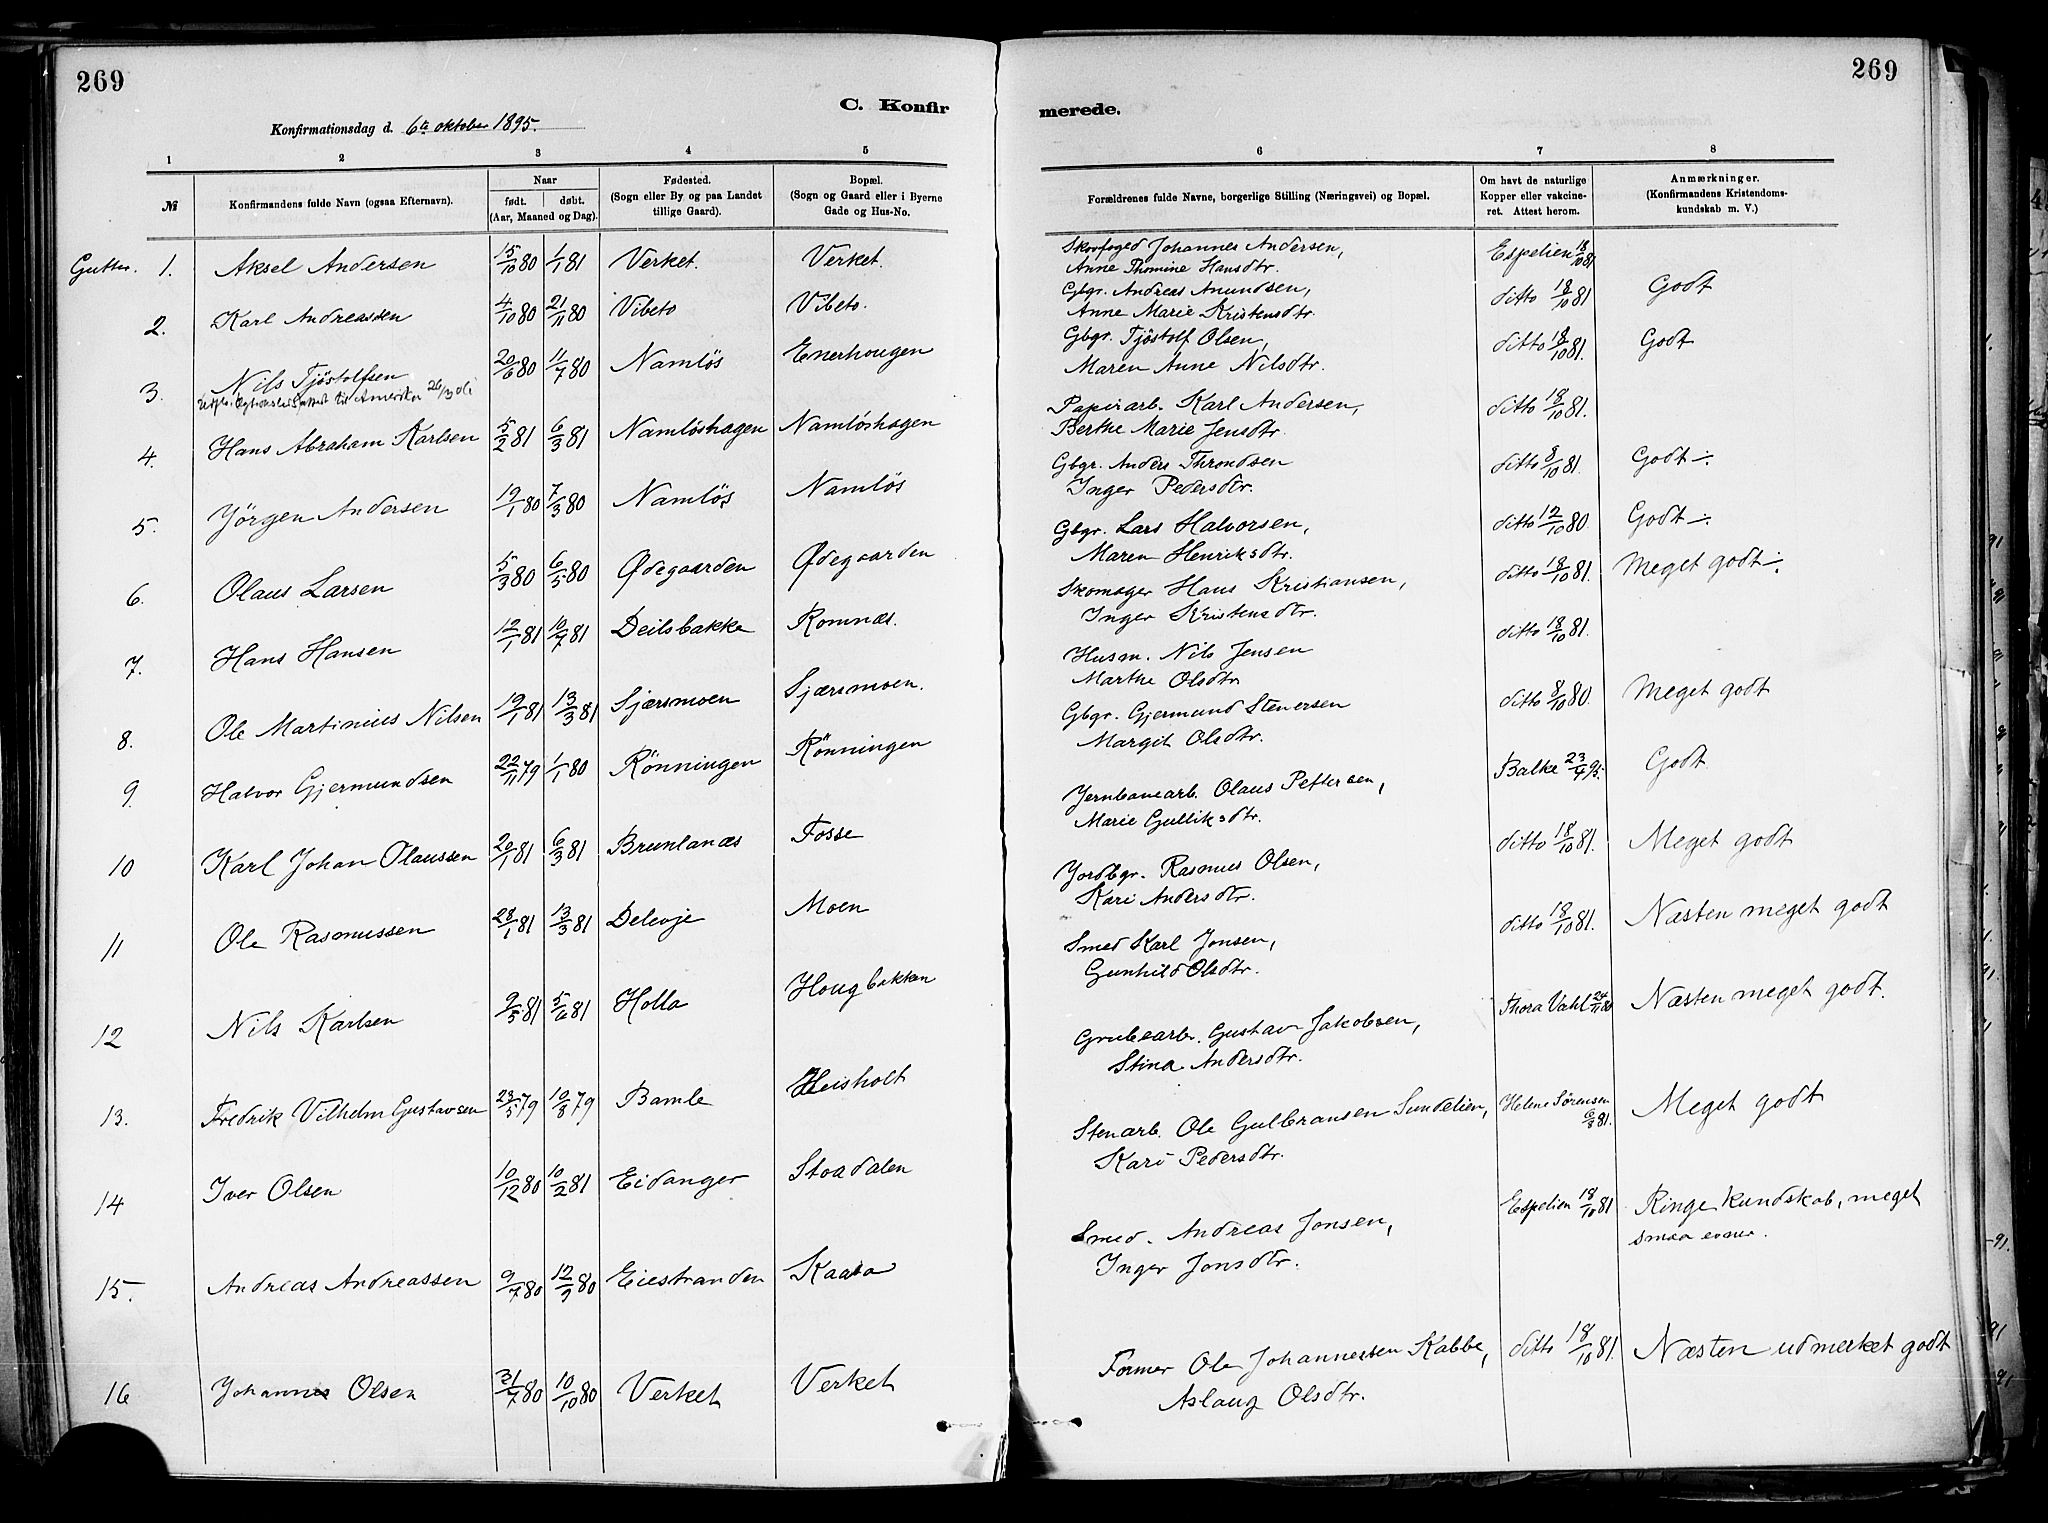 269
269
C. Konfir
merede.
Konfirmationsdag d. 6te oktober 1895.
1 2 3 4 5 6 7 8
№
Konfirmandens fulde Navn (ogsaa Efternavn).
Naar
født. døbt.
(Aar, Maaned og Dag).
Fødested.
(Sogn eller By og paa Landet
tillige Gaard).
Bopæl.
(Sogn og Gaard eller i Byerne
Gade og Hus-No.
Forældrenes fulde Navne, borgerlige Stilling (Næringsvei) og Bopæl.
Om havt de naturlige
Kopper eller vakcine-
ret. Attest herom.
Anmærkninger.
(Konfirmandens Kristendoms-
kundskab m. V.)
Gutter. 1. Aksel Andersen 15/10 80 1/1 81 Verket. Verket. Skovfoged Johannes Andersen, Espelien 18/10 81
Anne Thomine Hansdtr.
2. Karl Andreassen 4/10 80 21/11 80 Vibeto Vibeto. Gbgr. Andreas Anundsen, ditto 18/10 81 Godt
Anne Marie Kristensdtr.
3. Nils Tjöstolfsen 20/6 80 11/7 80 Namlös Enerhougen Gbgr. Tjöstolf Olsen, ditto 18/10 81. Godt
til Amerika
Maren Anne Nilsdtr.
4. Hans Abraham Karlsen 5/2 81 6/3 81 Namlöshagen Namlöshagen Papirarb. Karl Andersen, ditto 18/10 81.
Berthe Marie Jensdtr.
5. Jörgen Andersen 19/1 80 7/3 80 Namlös Namlös Gbgr. Anders Throndsen ditto 8/10 81. Godt ÷
Inger Pedersdtr.
6. Olaus Larsen 5/3 80 6/5 80 Ødegaarden Ødegaarden Gbgr. Lars Halvorsen, ditto 12/10 80 Godt ÷
Maren Henriksdtr.
7. Hans Hansen 12/1 81 10/7 81 Deilsbakke Romnæs. Skomager Hans Kristiansen, ditto 18/10 81. Meget godt ÷
Inger Kristensdtr.
8. Ole Martinius Nilsen 19/1 81 13/3 81 Sjærsmoen Sjærsmoen. Husm. Nils Jensen ditto 18/10 81.
Marthe Olsdtr
9. Halvor Gjermundsen 22/11 79 1/1 80 Rönningen Rönningen Gbgr. Gjermund Stenersen ditto 8/10 80. Meget godt
Margit Olsdtr.
10 Karl Johan Olaussen 20/1 81 6/3 81 Brunlanæs Fosse Jernbanearb. Olaus Pettersen, Balke 23/4 95. Godt
Marie Gulliksdtr.
11 Ole Rasmussen 28/1 81 13/3 81 Delevje Moen Jordbgr. Rasmus Olsen, ditto 18/10 81. Meget godt
Kari Andersdtr.
12 Nils Karlsen 9/5 81 5/6 81 Holla Hougbakken Smed Karl Jonsen, ditto 18/10 81. Næsten meget godt
Gunhild Olsdtr.
13. Fredrik Vilhelm Gustavsen 23/5 79 10/8 79 Bamle Heisholt Grubearb. Gustav Jakobsen, Thora Vahl 24/11 80 Næsten meget godt.
Stina Andersdtr.
14 Iver Olsen 10/12 80 10/2 81 Eidanger Stoadalen Stenarb. Ole Gulbransen Sundelien, Helene Sørensen 6/8 81. Meget godt
Kari Pedersdtr.
15. Andreas Andreassen 9/7 80 12/9 80 Eiestranden Kaasa Smed. Andreas Jonsen, Espelien 18/10 81 Ringe kundskab, meget
Inger Jonsdtr. smaa evner.
16 Johannes Olsen 31/7 80 10/10 80 Verket Verket Former Ole Johannessen Kabbe, ditto 18/10 81. Næsten udmerket godt
Aslaug Olsdtr.